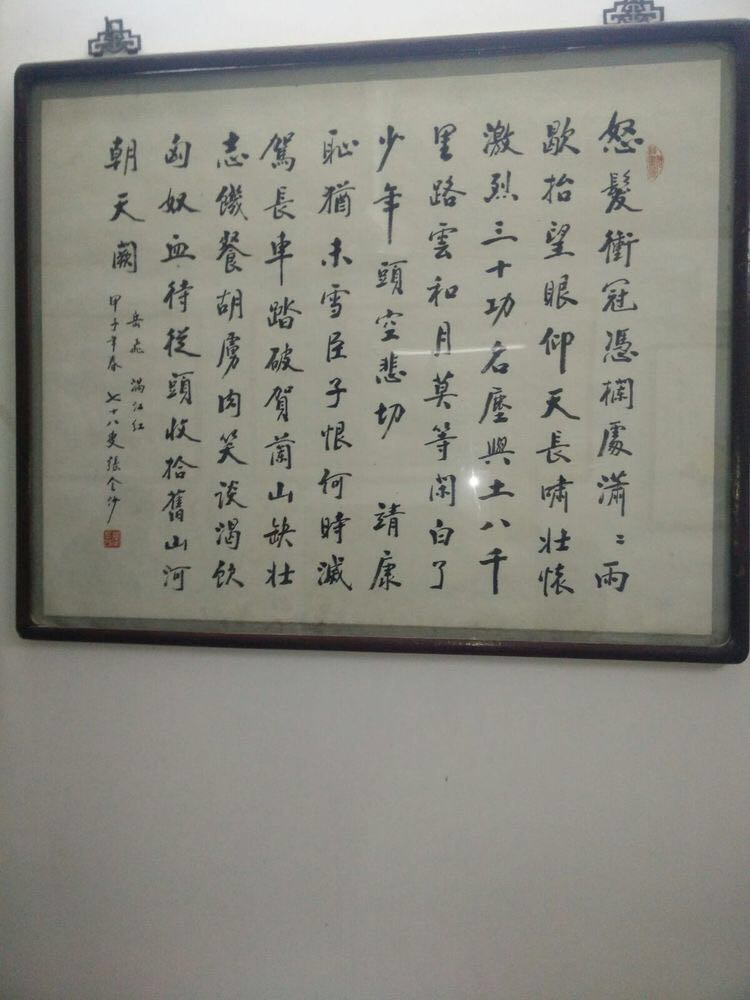 怒髮衝冠憑欄處瀟〻雨
歇抬望眼仰天長嘯壯懷
激烈三十功名塵與土八千
里路雲和月莫等閑白了
少年頭空悲切 靖康
恥猶未雪臣子恨何時滅
駕長車踏破賀蘭山缺壯
志饑餐胡虜肉笑談渴飲
匈奴血待從頭收拾舊山河
朝天闕
岳飛 滿江紅
甲子年春 七十八叟 張